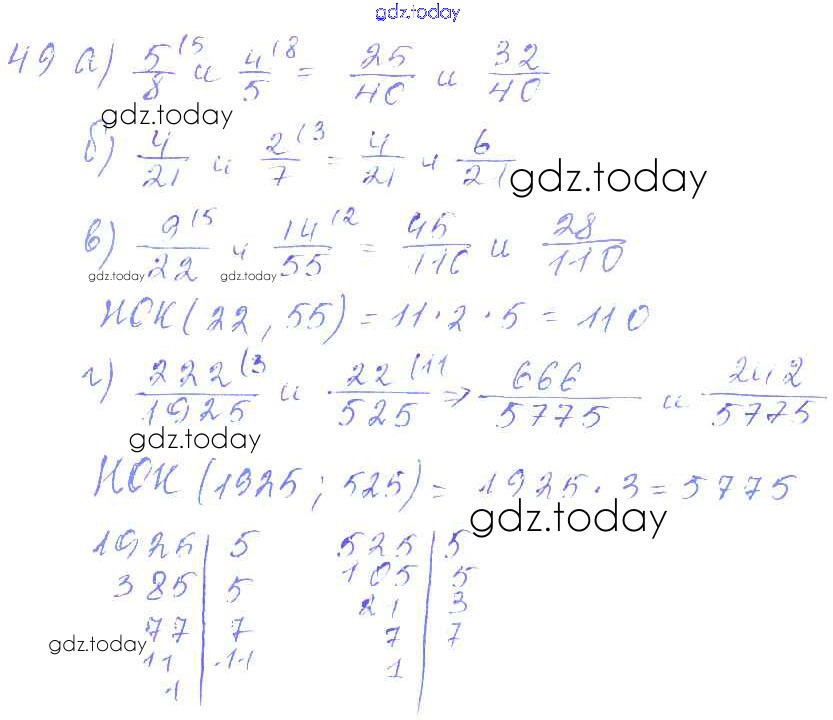 gdz.today
49 а) 5/8 (5 и 4/5 (8 = 25/40 и 32/40
gdz.today
б) 4/21 и 2/7 (3 = 4/21 и 6/21
gdz.today
в) 9/22 (5 и 14/55 (2 = 45/110 и 28/110
gdz.today gdz.today
НОК(22, 55) = 11·2·5 = 110
г) 222/1925 (3 и 22/525 (11 => 666/5775 и 242/5775
gdz.today
НОК(1925; 525) = 1925·3 = 5775
gdz.today
1925 | 5 525 | 5
385 | 5 105 | 5
21 | 3
77 | 7 7 | 7
gdz.today
11 | 11 1
1